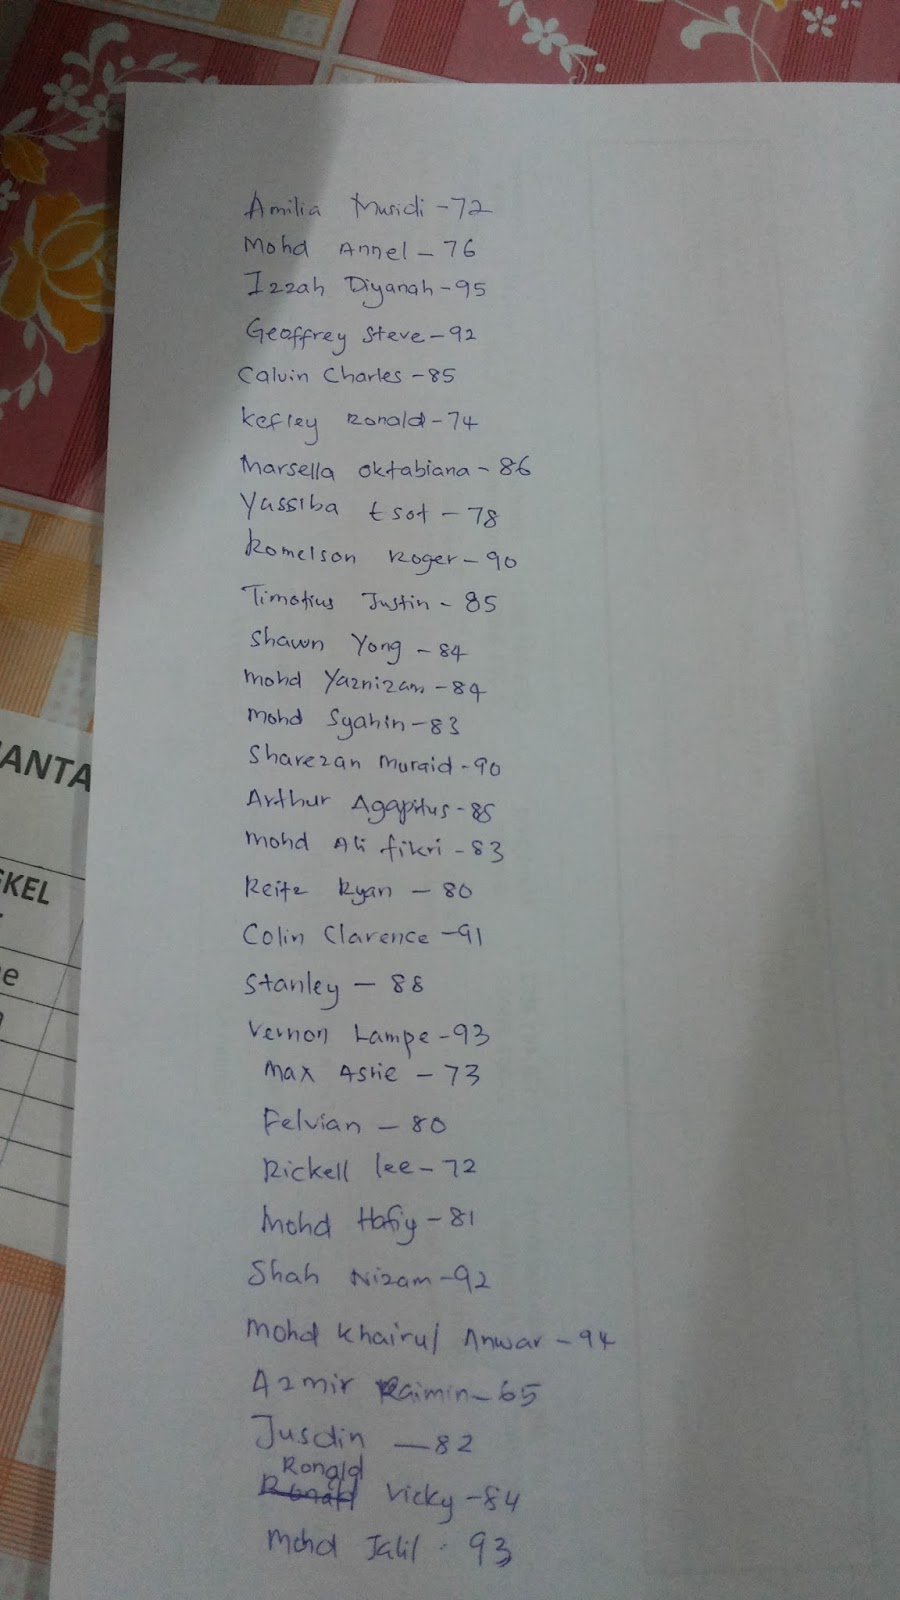 Amilia Musidi - 72
Mohd Annel - 76
Izzah Diyanah - 95
Geoffrey Steve - 92
Calvin Charles - 85
Kefley Ronald - 74
Marsella Oktabiana - 86
Yassiba Esot - 78
Romelson Roger - 90
Timotius Justin - 85
Shawn Yong - 84
Mohd Yaznizam - 84
Mohd Syahin - 83
Sharezan Muraid - 90
Arthur Agapitus - 85
Mohd Ali fikri - 83
Reitz Ryan - 80
Colin Clarence - 91
Stanley - 88
Vernon Lampe - 93
Max - 73
Felvian - 80
Rickell lee - 72
Mohd Hafiy - 81
Shah Nizam - 92
Mohd Khairul Anwar - 94
Azmir Raimin - 65
Jusdin - 82
Ronald
Ronald Vicky - 84
Mohd Jalil . 93
ANTA
KEL